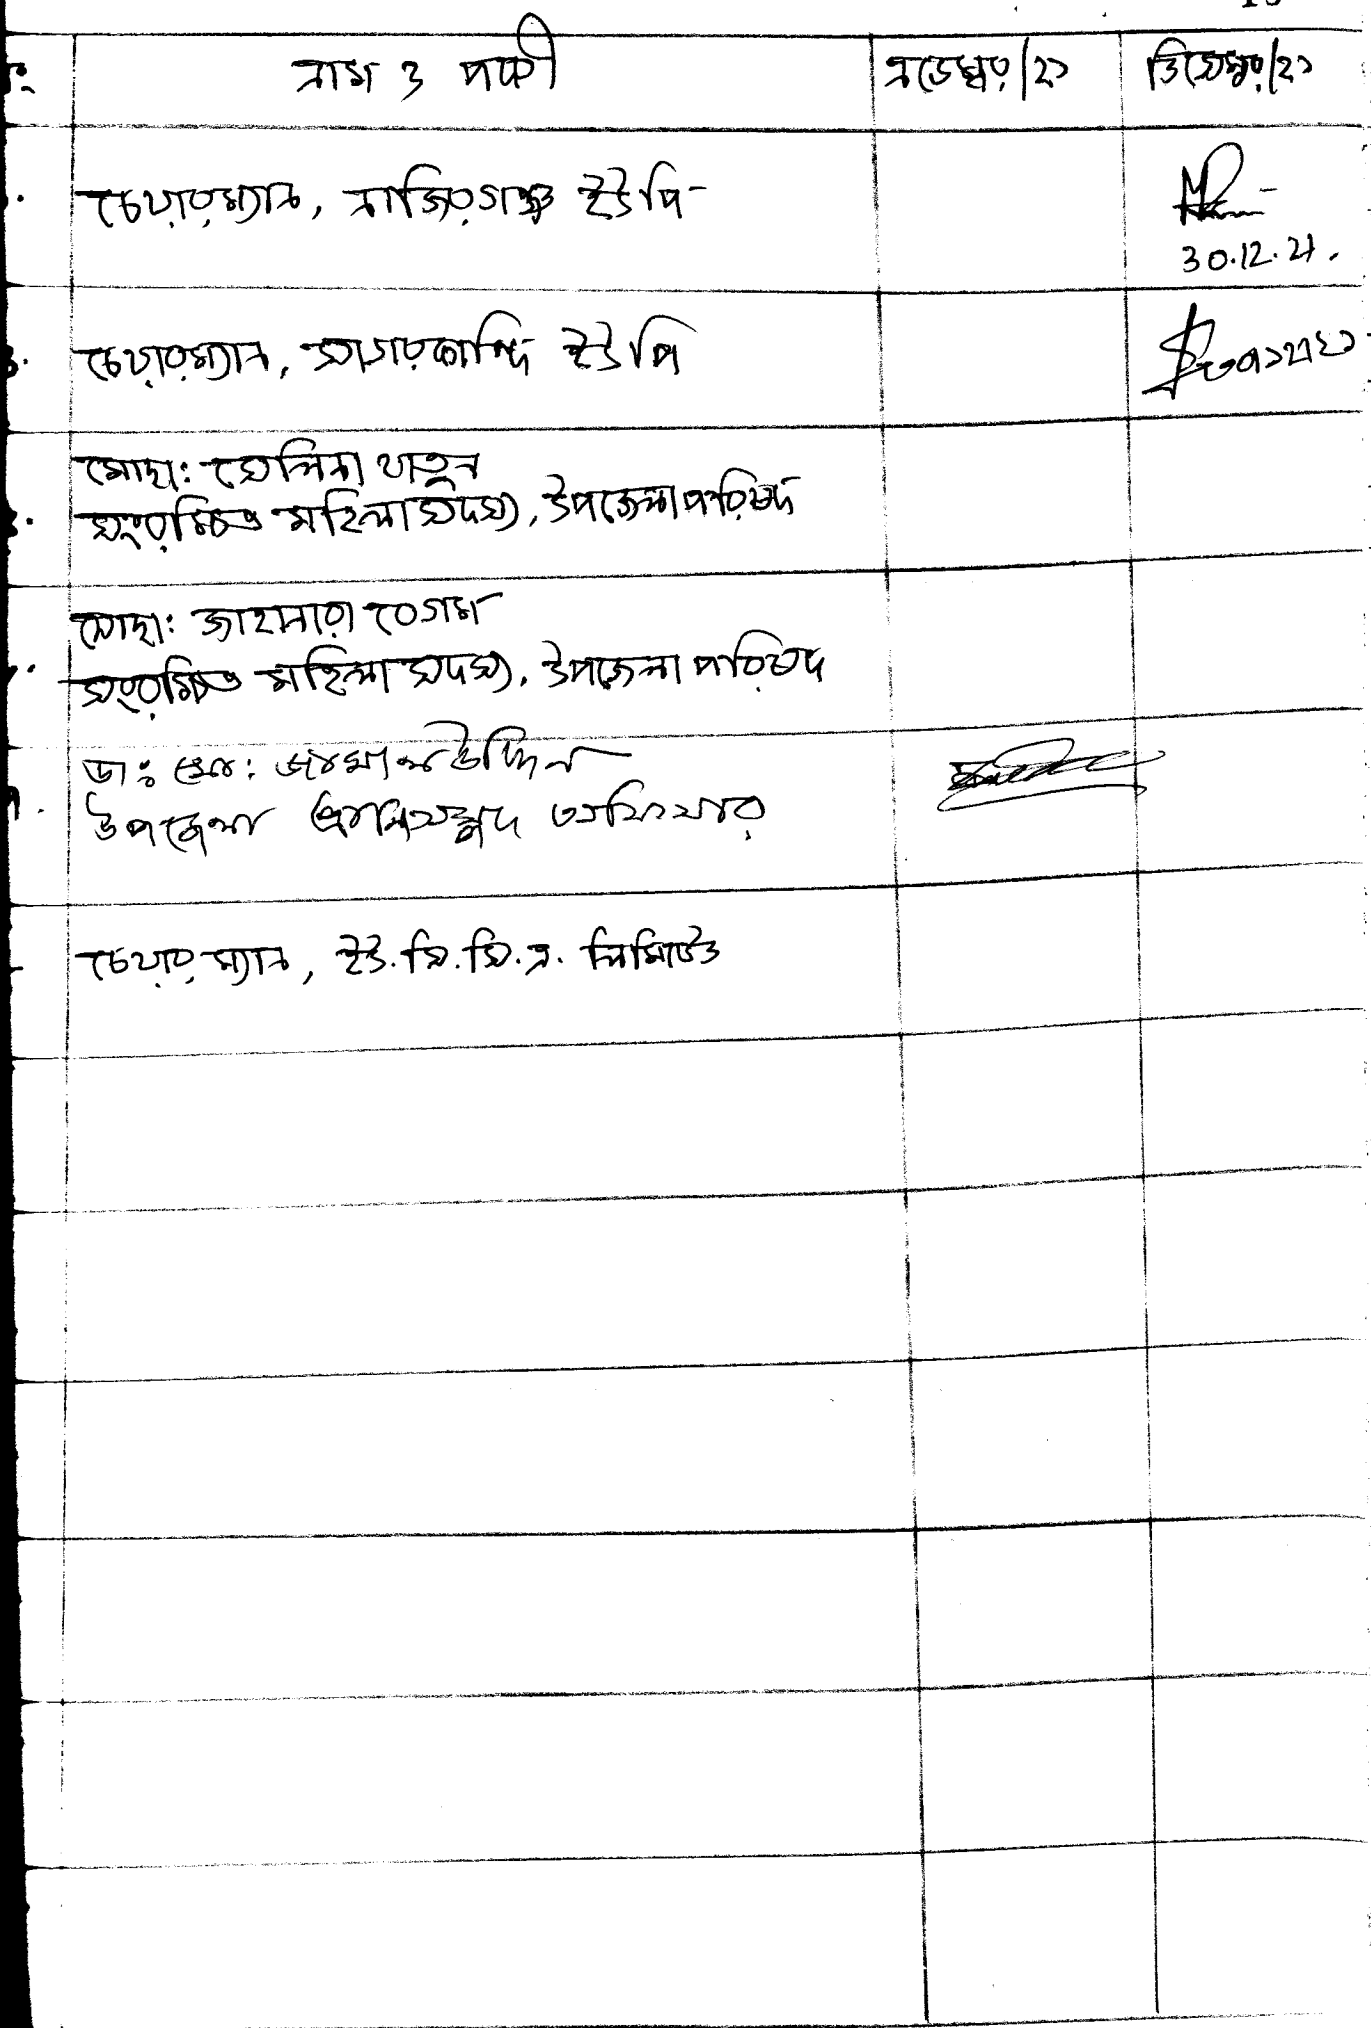 নাম ও পদবী নভেম্বর/২১ ডিসেম্বর/২১
চেয়ারম্যান, নাজিরগঞ্জ ইউপি
30.12.21.
চেয়ারম্যান, সাগরকান্দি ইউপি
মোছা: সেলিনা খাতুন
সংরক্ষিত মহিলা সদস্য, উপজেলা পরিষদ
মোছা: জাহানারা বেগম
সংরক্ষিত মহিলা সদস্য, উপজেলা পরিষদ
ডা: মো: উদ্দিন
উপজেলা প্রাণিসম্পদ অফিসার
চেয়ারম্যান, ইউ.সি.সি.এ. লিমিটেড